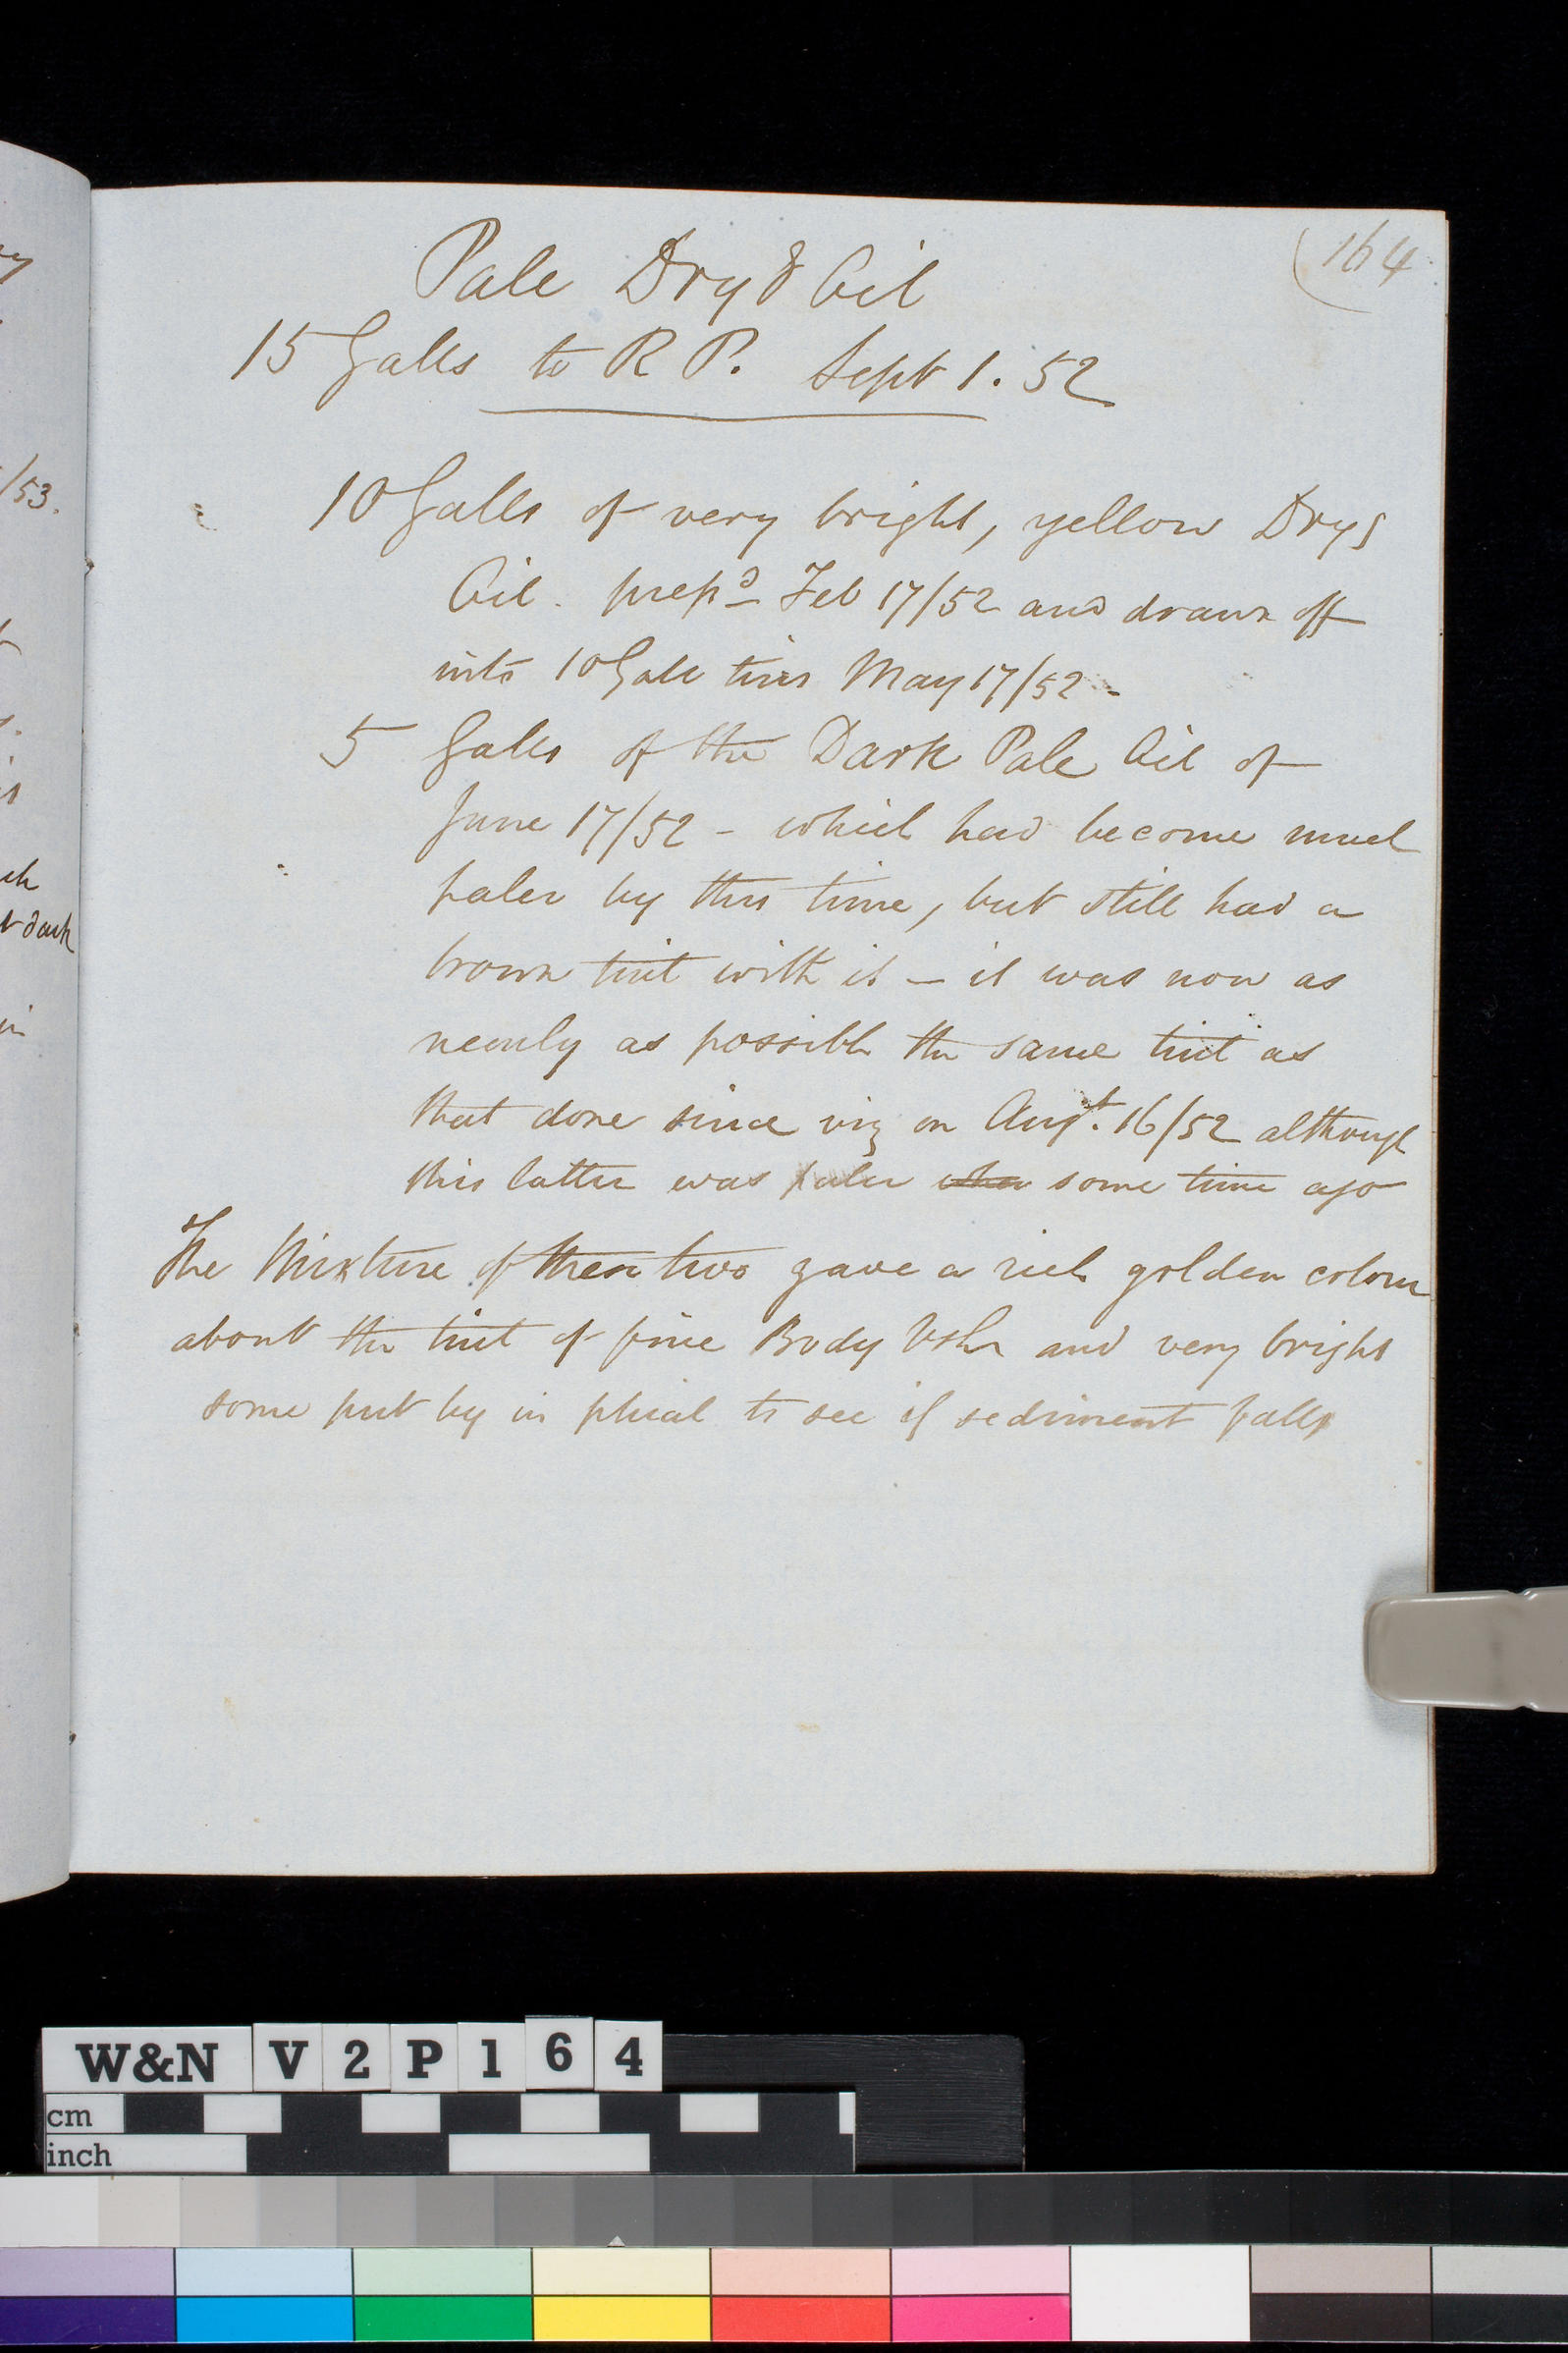 164
Pale Dryg Oil
15 Galls to R P. Sept 1. 52
10 Galls of very bright, yellow Dryg
Oil. prepd Feb 17/52 and drawn off
into 10 Gall tins May 17/52 -
5 Galls of the Dark Pale Oil of
June 17/52 - which had become much
paler by this time, but still had a
brown tint with it - it was now as
nearly as possible the same tint as
that done since viz on Augt. 16/52 although
this latter was paler when some time ago
The Mixture of these two gave a rich golden colour
about the tint of fine Body Vsh and very bright
some put by in phial to see if sediment falls
/53.
ch
t dark
in
W&N V2P164
cm
inch